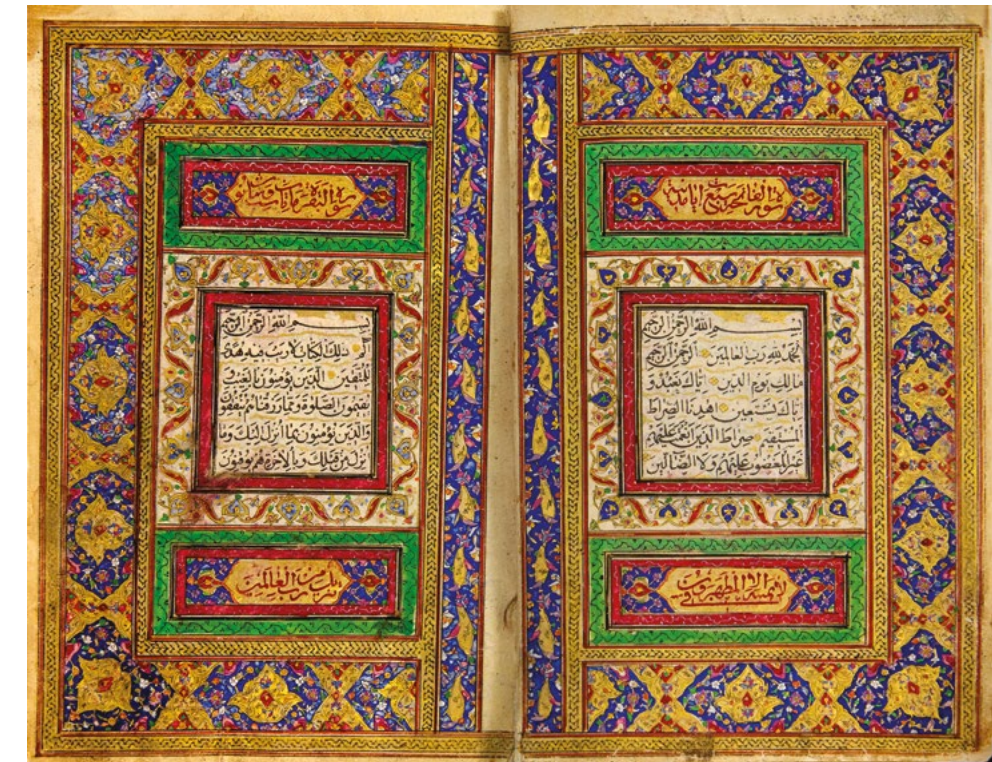 سورة الفاتحة سبع ايات
بسم الله الرحمن الرحيم
الحمد لله رب العالمين الرحمن الرحيم
مالك يوم الدين اياك نعبد و
اياك نستعين اهدنا الصراط
المستقيم صراط الذين انعمت عليهم
غير المغضوب عليهم ولا الضالين
لا يمسه الا المطهرون
سورة البقرة مأتان و ست
بسم الله الرحمن الرحيم
الم ذلك الكتاب لا ريب فيه هدى
للمتقين الذين يؤمنون بالغيب و
يقيمون الصلوة و مما رزقناهم ينفقون
والذين يؤمنون بما انزل اليك وما
انزل من قبلك وبالاخرة هم يوقنون
تنزيل من رب العالمين